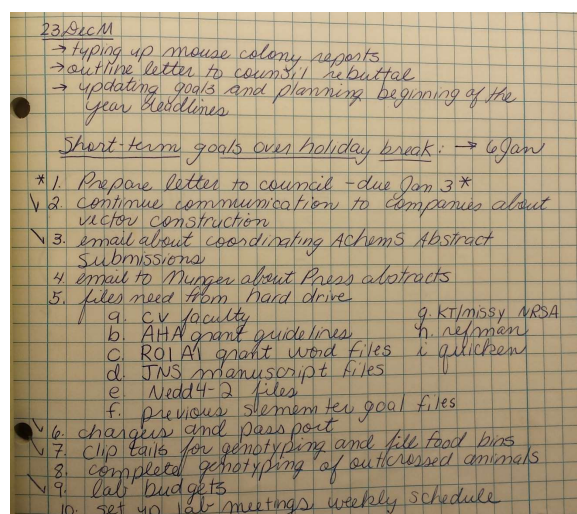 23 Dec M
→ typing up mouse colony reports
→ outline letter to council rebuttal
→ updating goals and planning beginning of the
year deadlines
Short-term goals over holiday break: → 6 Jan
* 1. Prepare letter to council - due Jan 3 *
✓ 2. continue communication to companies about
vector construction
✓ 3. email about coordinating AChemS Abstract
Submissions
4. email to Munger about Press abstracts
5. files need from hard drive
a. CV faculty g. KT/missy NRSA
b. AHA grant guidelines h. refman
c. RO1 A1 grant word files i quicken
d. JNS manuscript files
e. Nedd4-2 files
f. previous semester goal files
✓ 6. chargers and passport
✓ 7. clip tails for genotyping and fill food bins
8. complete genotyping of outcrossed animals
✓ 9. lab budgets
10. set up lab meetings weekly schedule